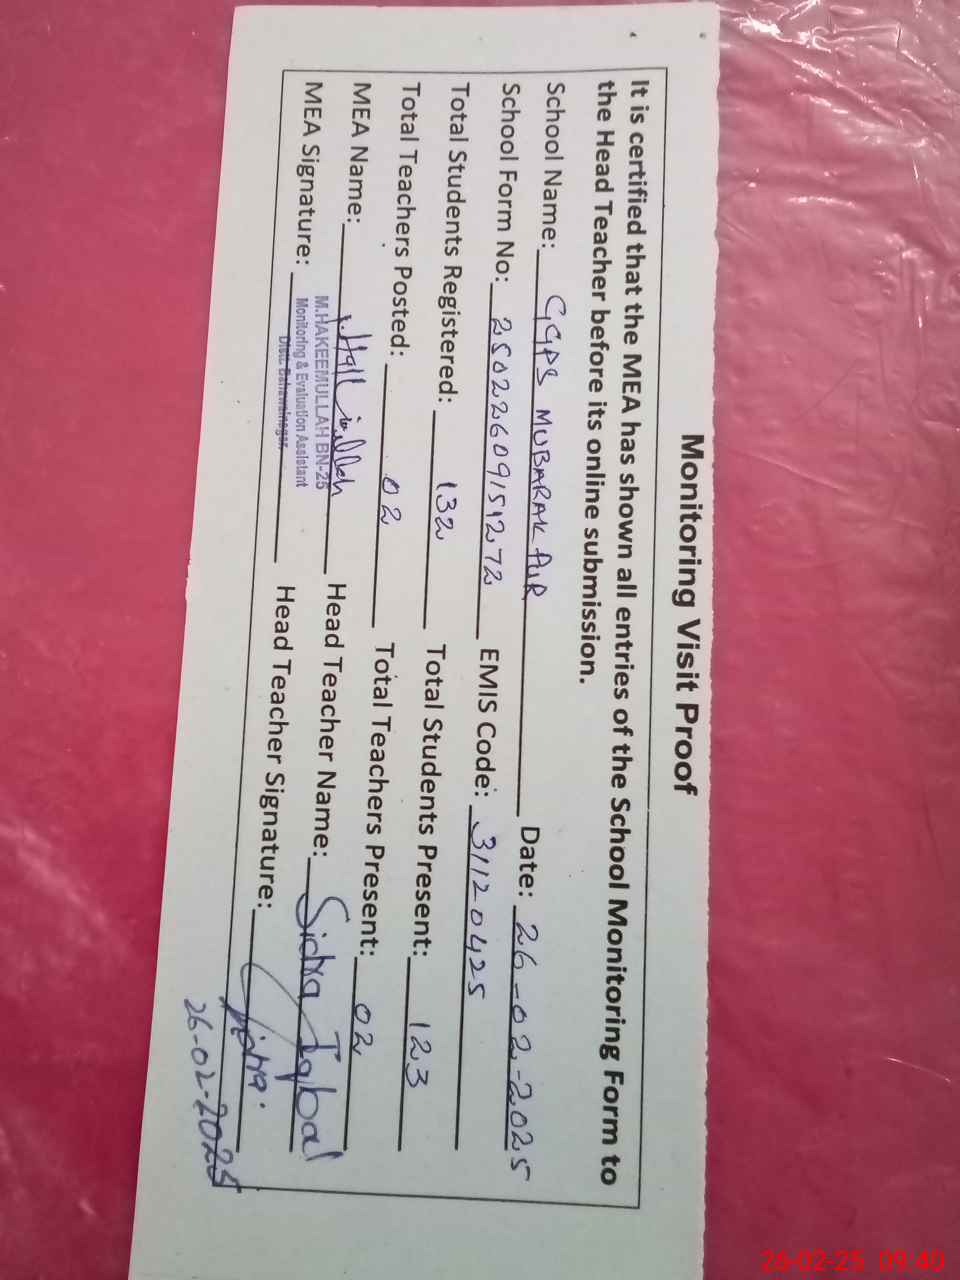 Monitoring Visit Proof
It is certified that the MEA has shown all entries of the School Monitoring Form to
the Head Teacher before its online submission.
School Name: GGPS MUBARAK PUR Date: 26-02-2025
School Form No: 25022609151272 EMIS Code: 31120425
Total Students Registered: 132 Total Students Present: 123
Total Teachers Posted: 02 Total Teachers Present: 02
MEA Name: Head Teacher Name: Sidra Iqbal
MEA Signature: Head Teacher Signature: Sidra.
M.HAKEEMULLAH BN-25
Monitoring & Evaluation Assistant
Distt. Bahawalnagar.
26-02-2025
26-02-25 09:40